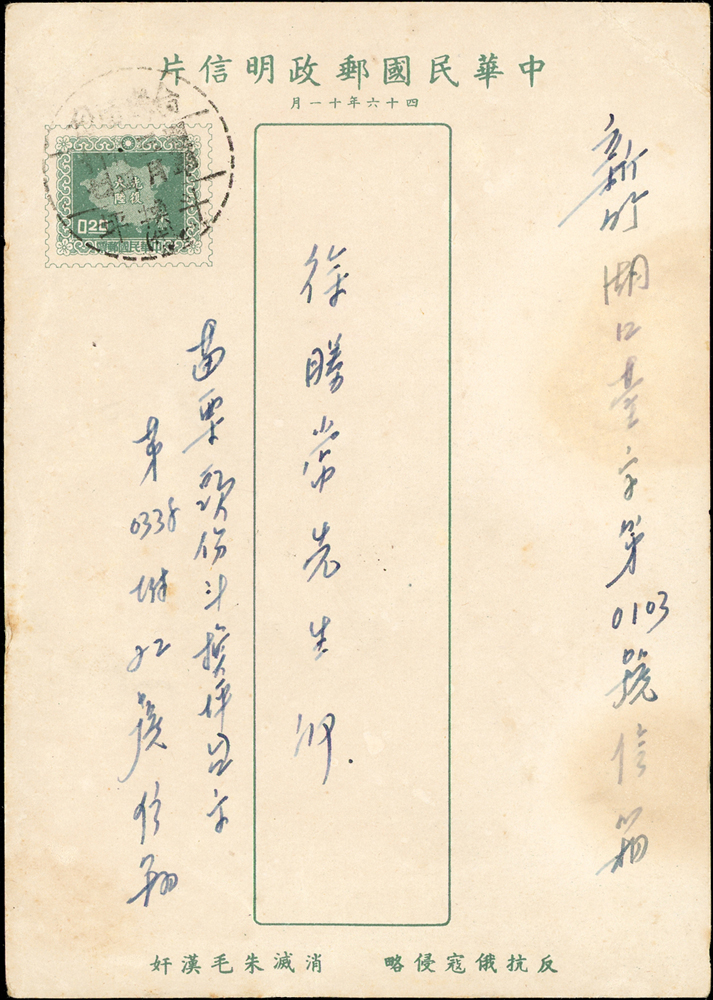 中華民國郵政明信片
四十六年十一月
光復
大陸
0.25
中華民國郵政
斗換坪
新竹湖口臺字第0103號信箱
徐勝常先生
苗栗頭份斗換坪字
第0338附號信箱
反抗俄寇侵略 消滅朱毛漢奸